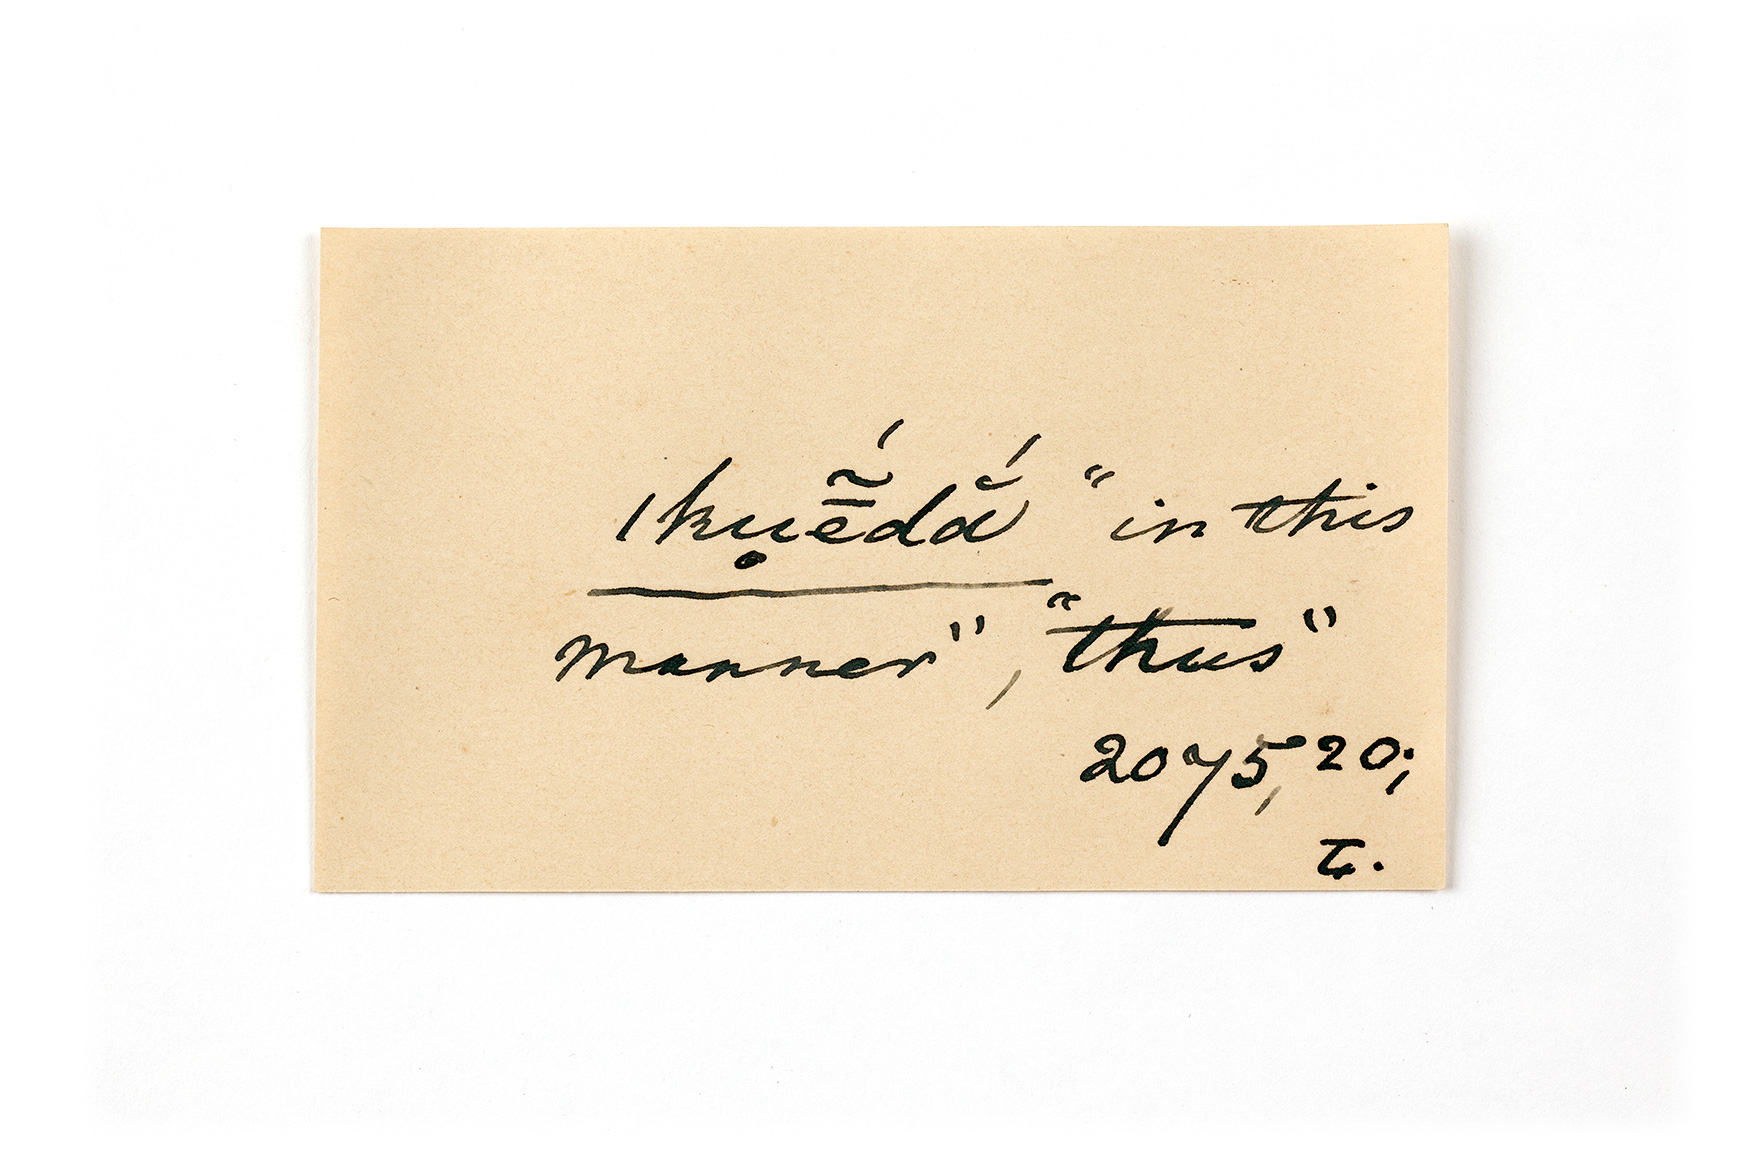 ǀku̥ē̃́dắ “in this
manner”, “thus”
2075, 20;
T.